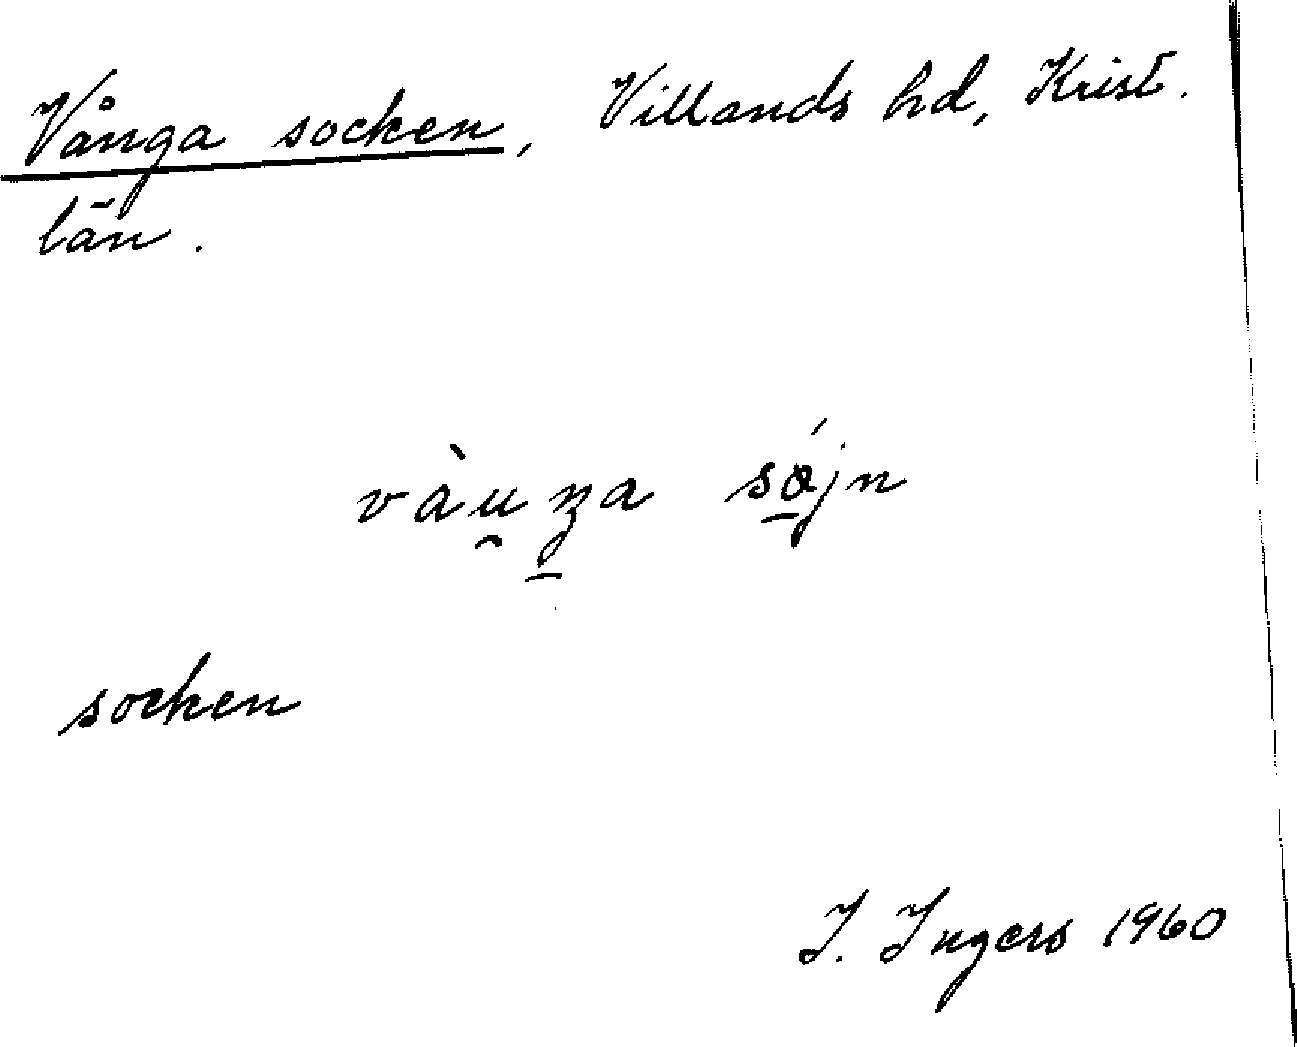 Vånga socken, Villands hd, Krist.
län.
vàu̯ŋa sǿjn
socken
I. Ingers 1960